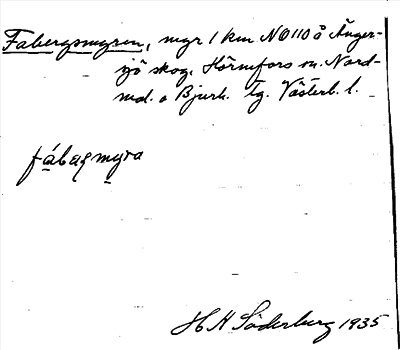 Fabergsmyren, myr 1 km NO 110 å Ånger-
sjö skog, Hörnefors sn. Nord-
md. o Bjurh. tg. Västerb. l.
fábaʂmyra
H H Söderberg 1935